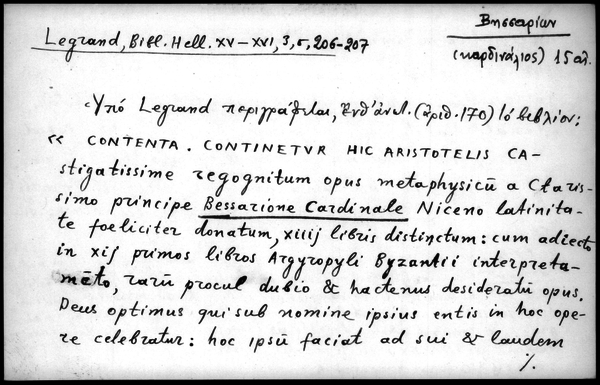 Βησσαρίων
Legrand, Bibl. Hell. XV–XVI, 3, 5, 206-207
(καρδινάλιος) 15 αι.
Ὑπό Legrand περιγράφεται, (ἀριθ. 170) τό βιβλίον:
« CONTENTA. CONTINETVR HIC ARISTOTELIS CA-
stigatissime recognitum opus metaphysicū a Claris-
simo principe Bessarione Cardinale Niceno latinita-
te foeliciter donatum, xiiij libris distinctum: cum adiecto
in xij primos libros Argyropyli Byzantii interpreta-
mēto, rarū procul dubio & hactenus desideratū opus.
Deus optimus qui sub nomine ipsius entis in hoc ope-
re celebratur: hoc ipsū faciat ad sui & laudem
./.